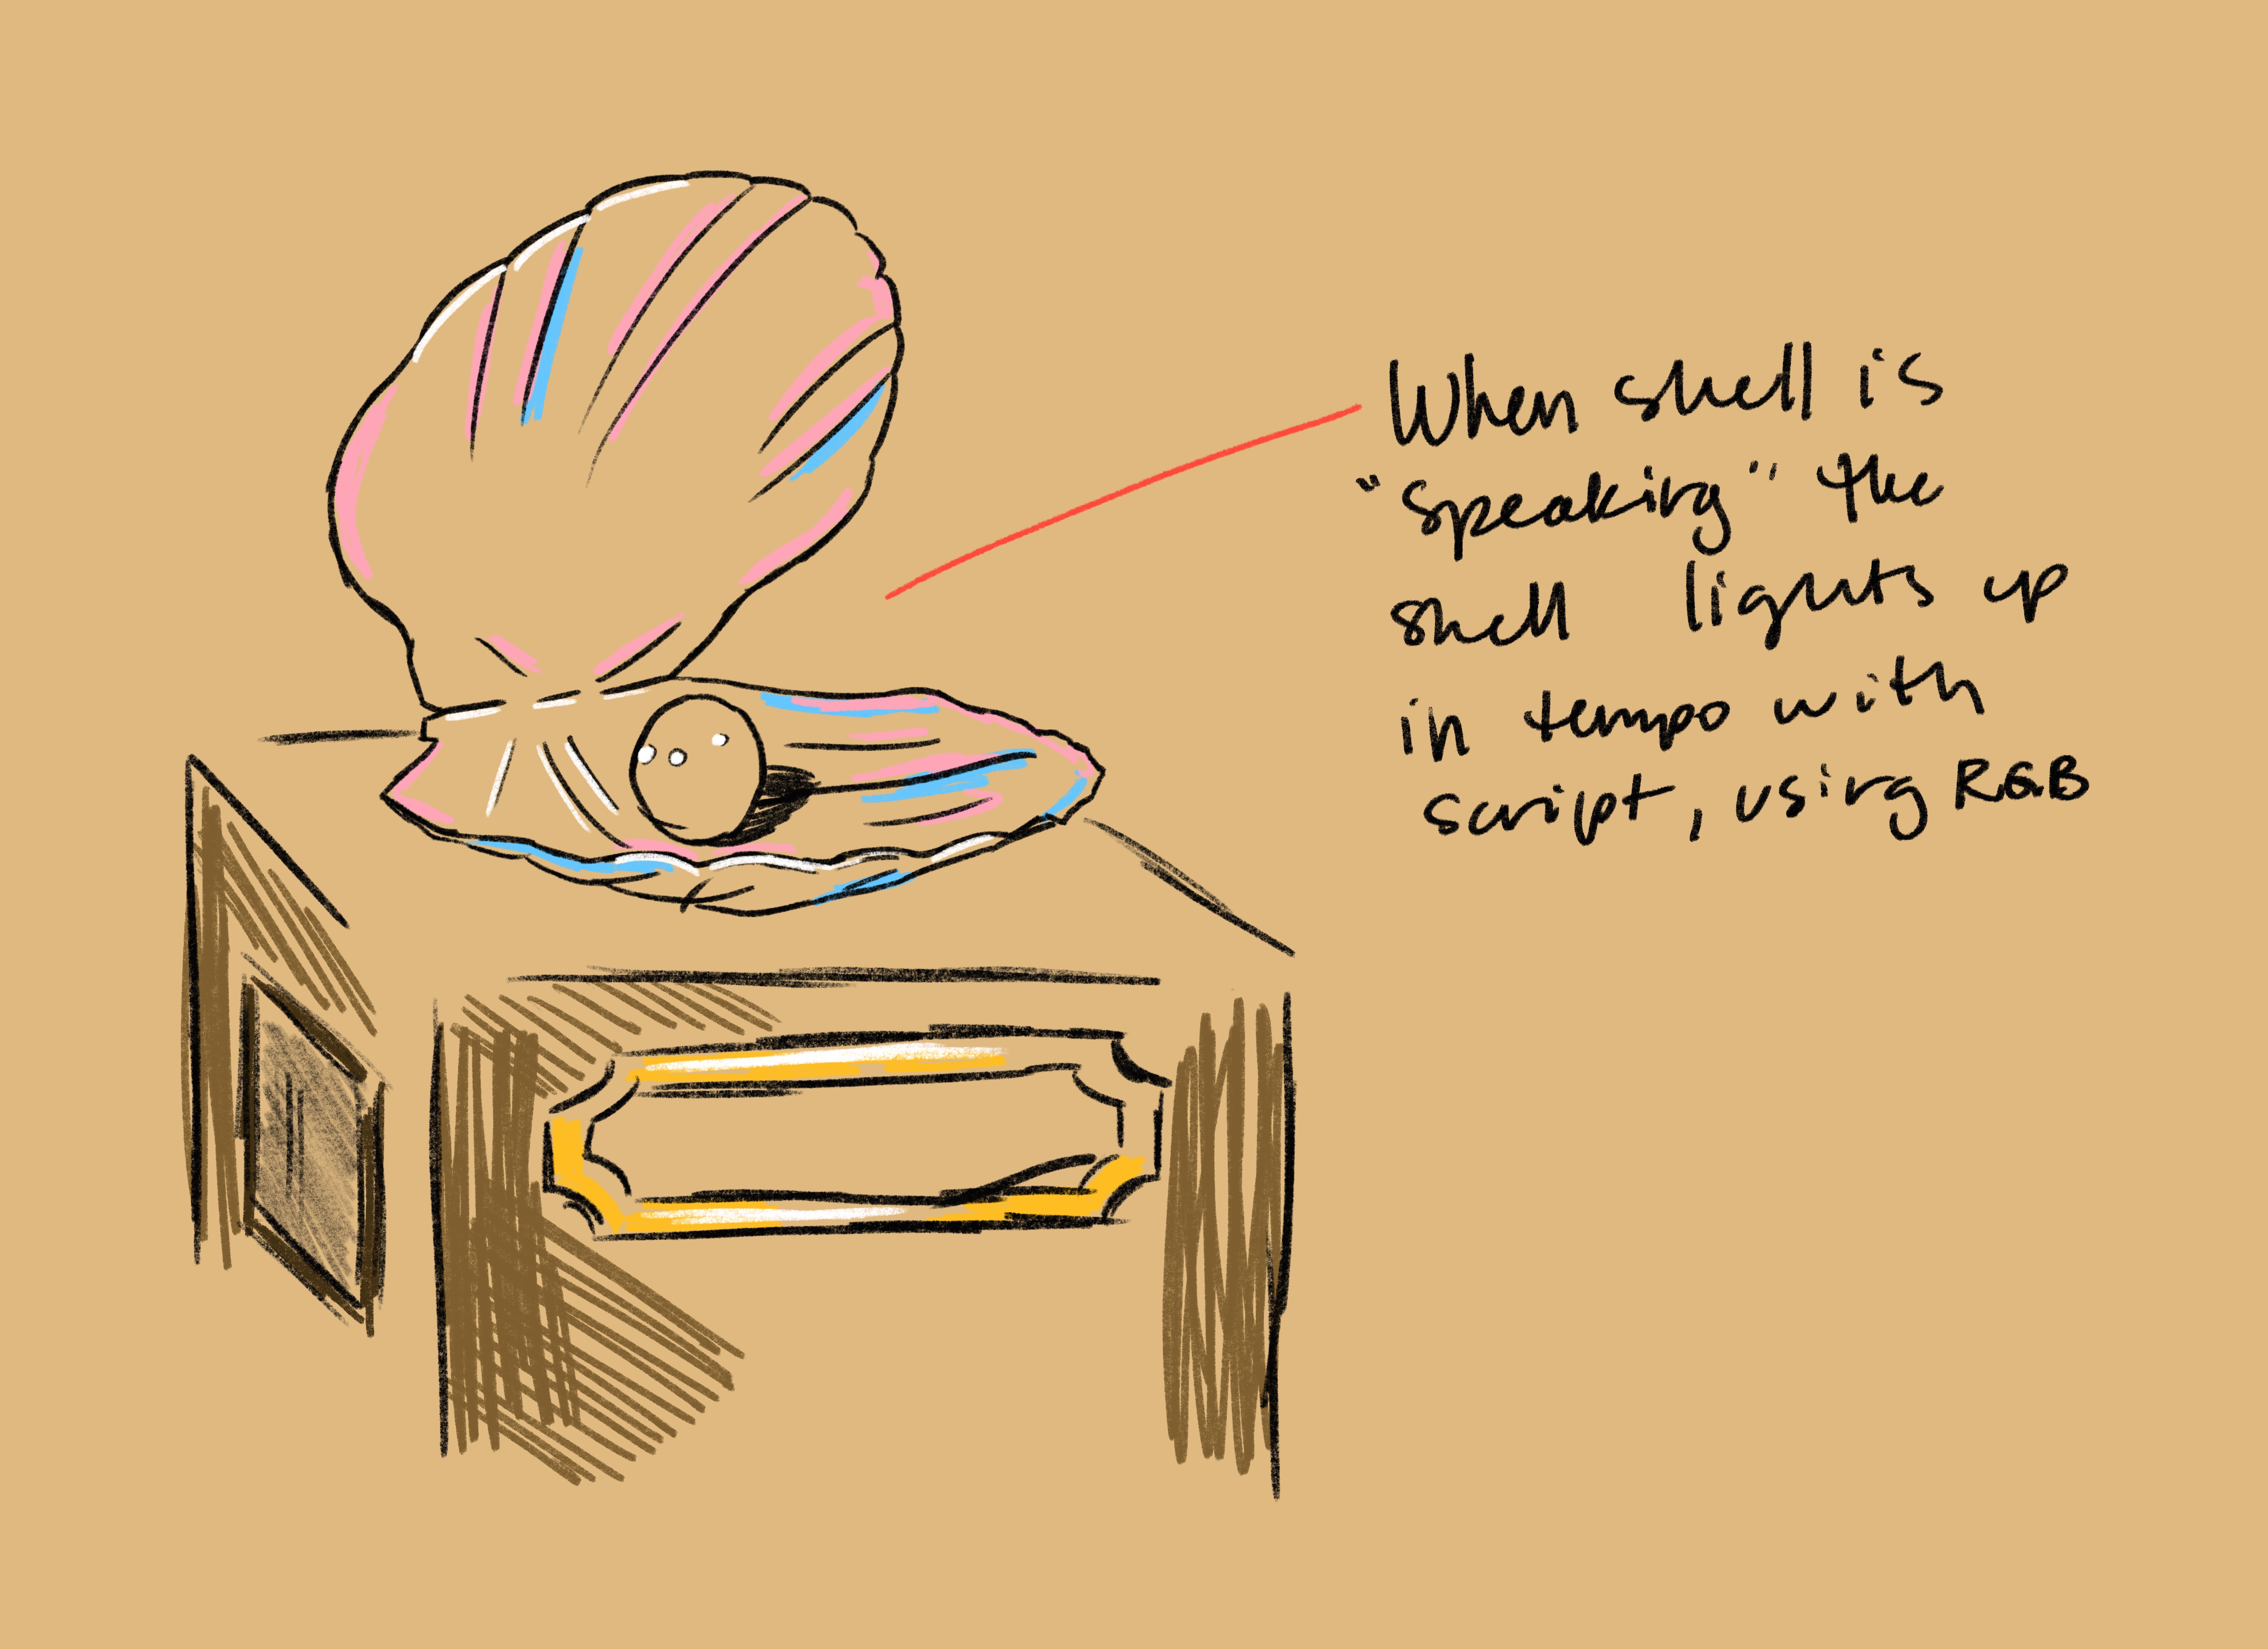 When shell is
"speaking" the
shell lights up
in tempo with
script, using RGB